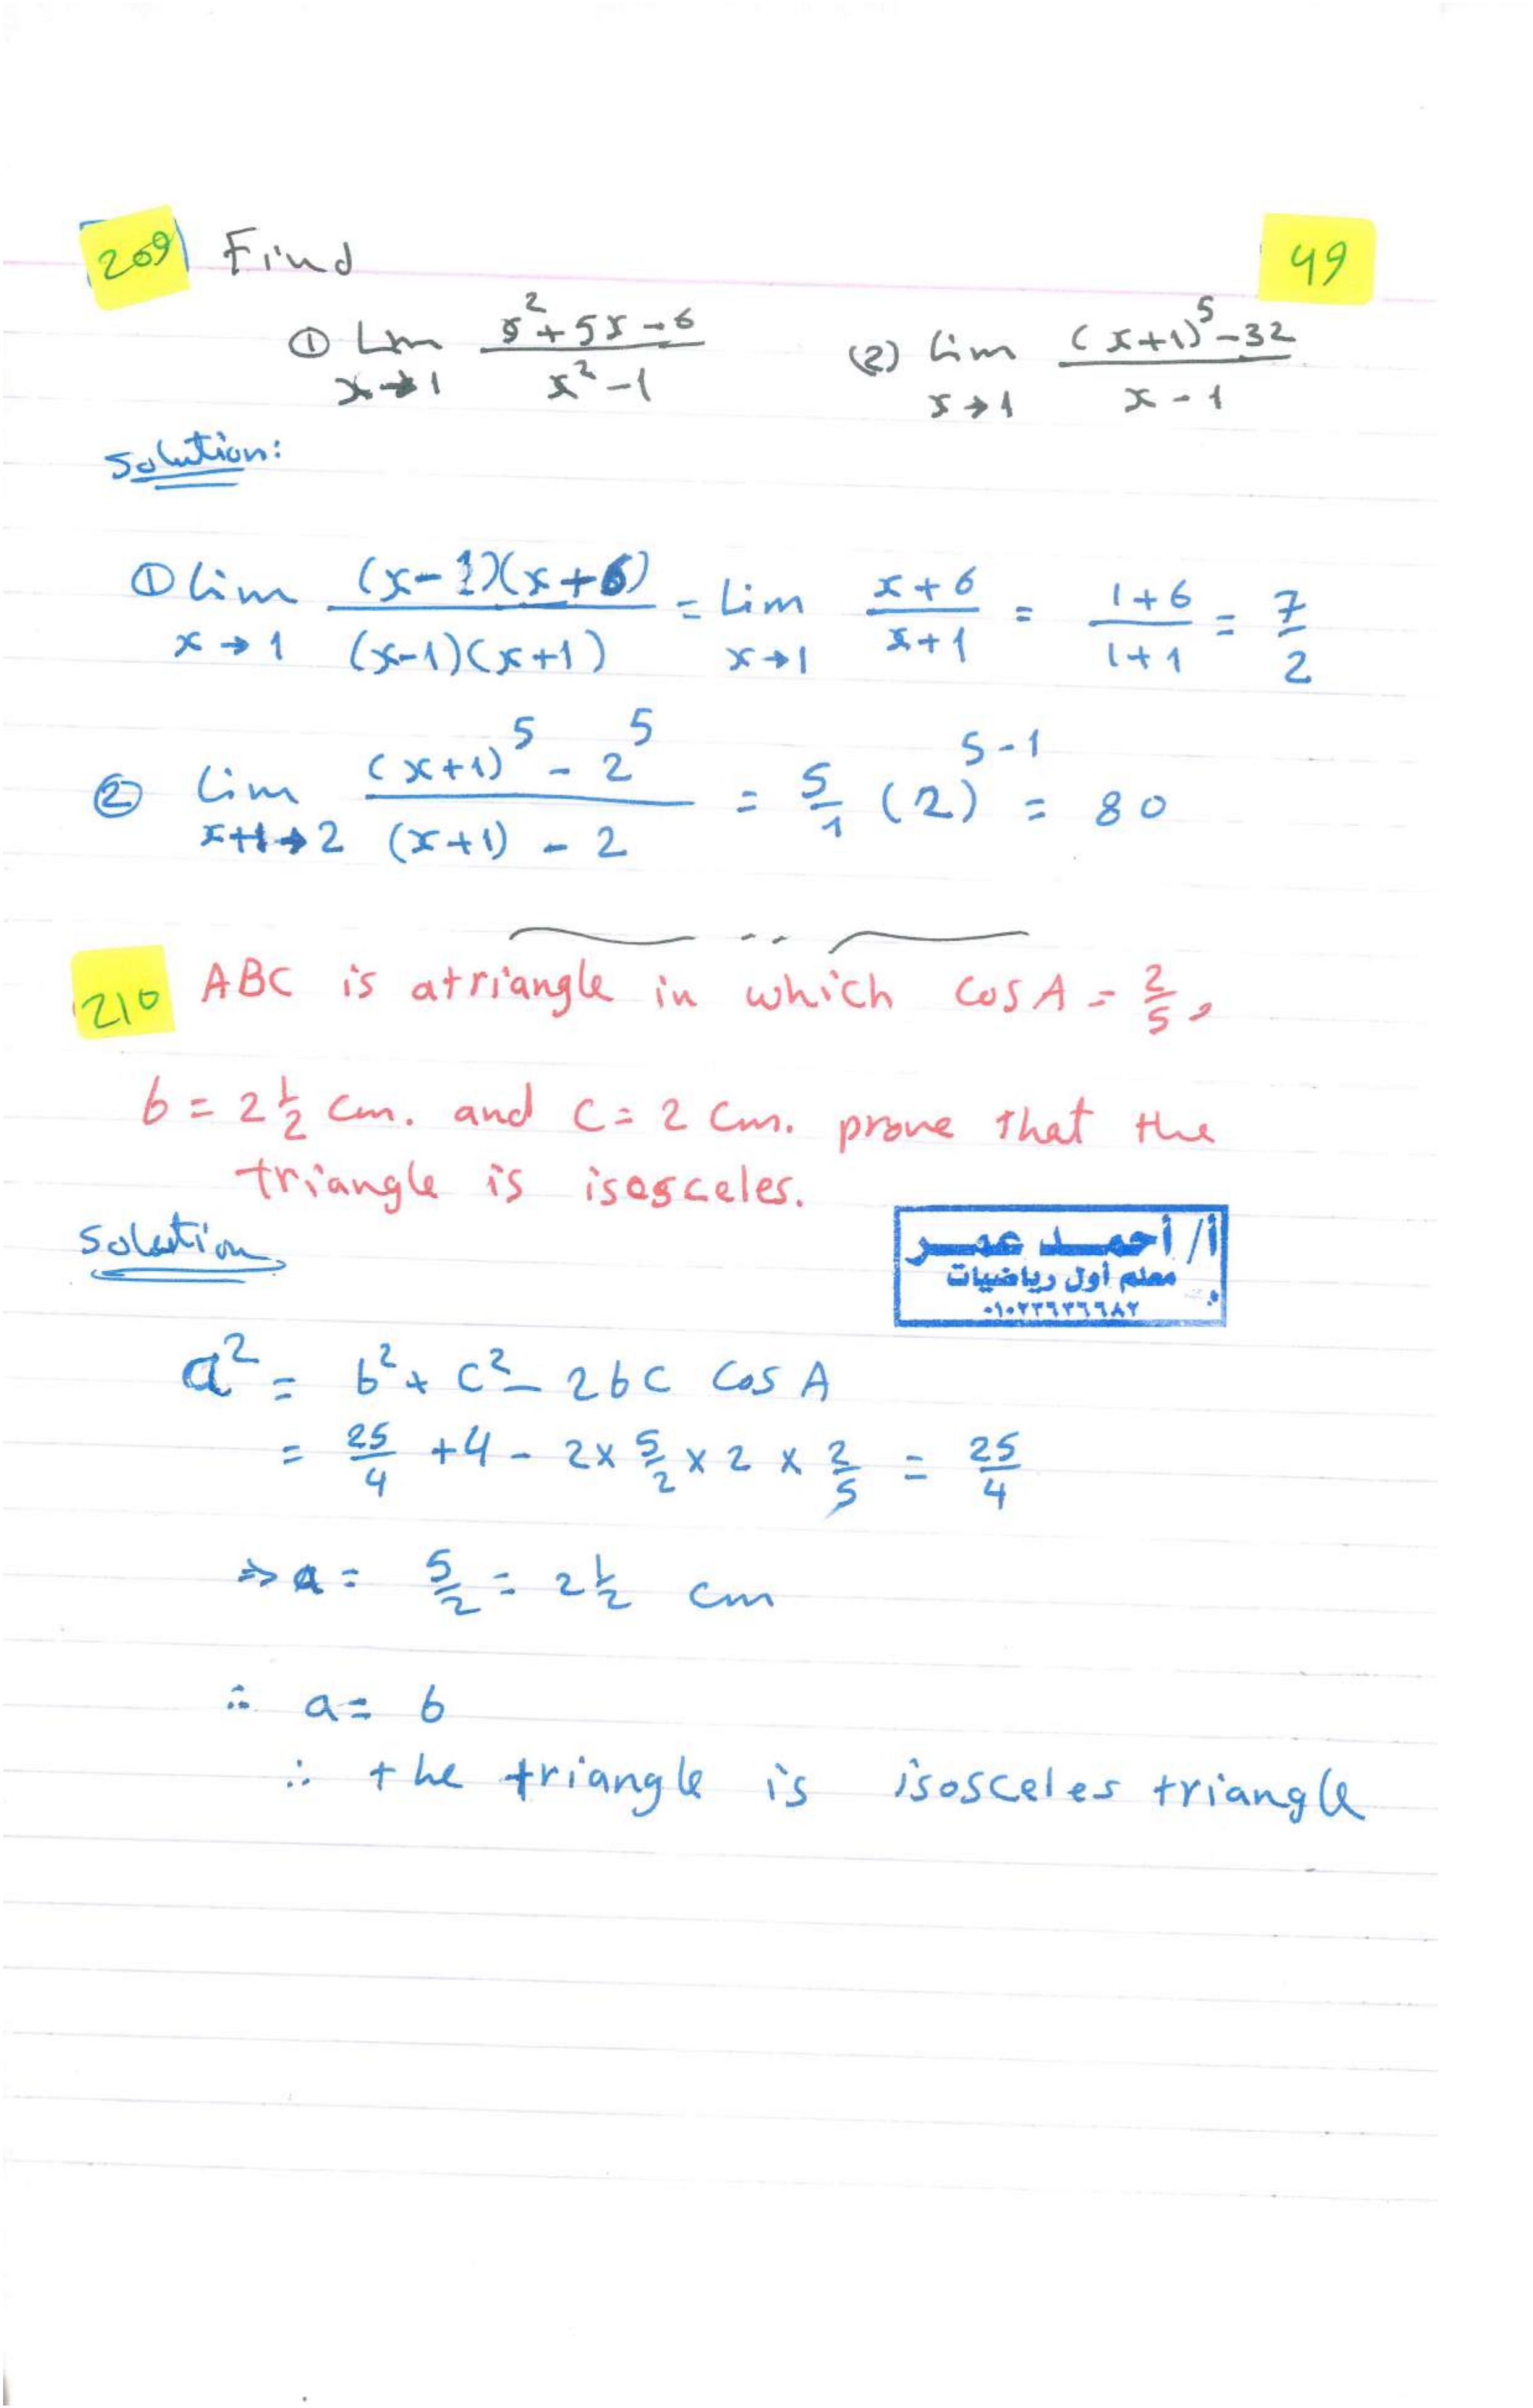 209 Find 49
① Lim x→1 (x²+5x-6)/(x²-1) (2) lim x→1 ((x+1)⁵-32)/(x-1)
Solution:
① lim x→1 ((x-1)(x+6))/((x-1)(x+1)) = Lim x→1 (x+6)/(x+1) = (1+6)/(1+1) = 7/2
② lim x+1→2 ((x+1)⁵-2⁵)/((x+1)-2) = 5/1 (2)⁵⁻¹ = 80
210 ABC is a triangle in which cos A = 2/5,
b = 2 1/2 cm. and c = 2 cm. prove that the
triangle is isosceles.
Solution
أ/ أحمد عمر
معلم أول رياضيات
a² = b² + c² - 2bc cos A
= 25/4 + 4 - 2 × 5/2 × 2 × 2/5 = 25/4
⇒ a = 5/2 = 2 1/2 cm
∴ a = b
∴ the triangle is isosceles triangle